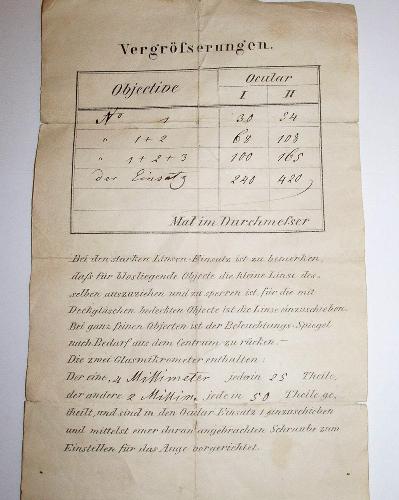 Vergröfserungen.
Objective Ocular
I II
No 1 30 54
" 1+2 68 108
" 1+2+3 100 165
der Einsatz 240 420
Mal im Durchmefser
Bei den starken Linsen-Einsatz ist zu bemerken,
daß für blosliegende Objecte die kleine Linse des-
selben auszuziehen und zu sperren ist, für die mit
Deckgläschen bedeckten Objecte ist die Linse einzuschieben.
Bei ganz feinen Objecten ist der Beleuchtungs-Spiegel
nach Bedarf aus dem Centrum zu rücken. —
Die zwei Glasmikrometer enthalten:
Der eine 4 Millimeter jeder in 25 Theile,
der andere 2 Millim. jede in 50 Theile ge,
theilt, und sind in den Ocular-Einsatz 1 einzuschieben
und mittelst einer daran angebrachten Schraube zum
Einstellen für das Auge vorgerichtet.